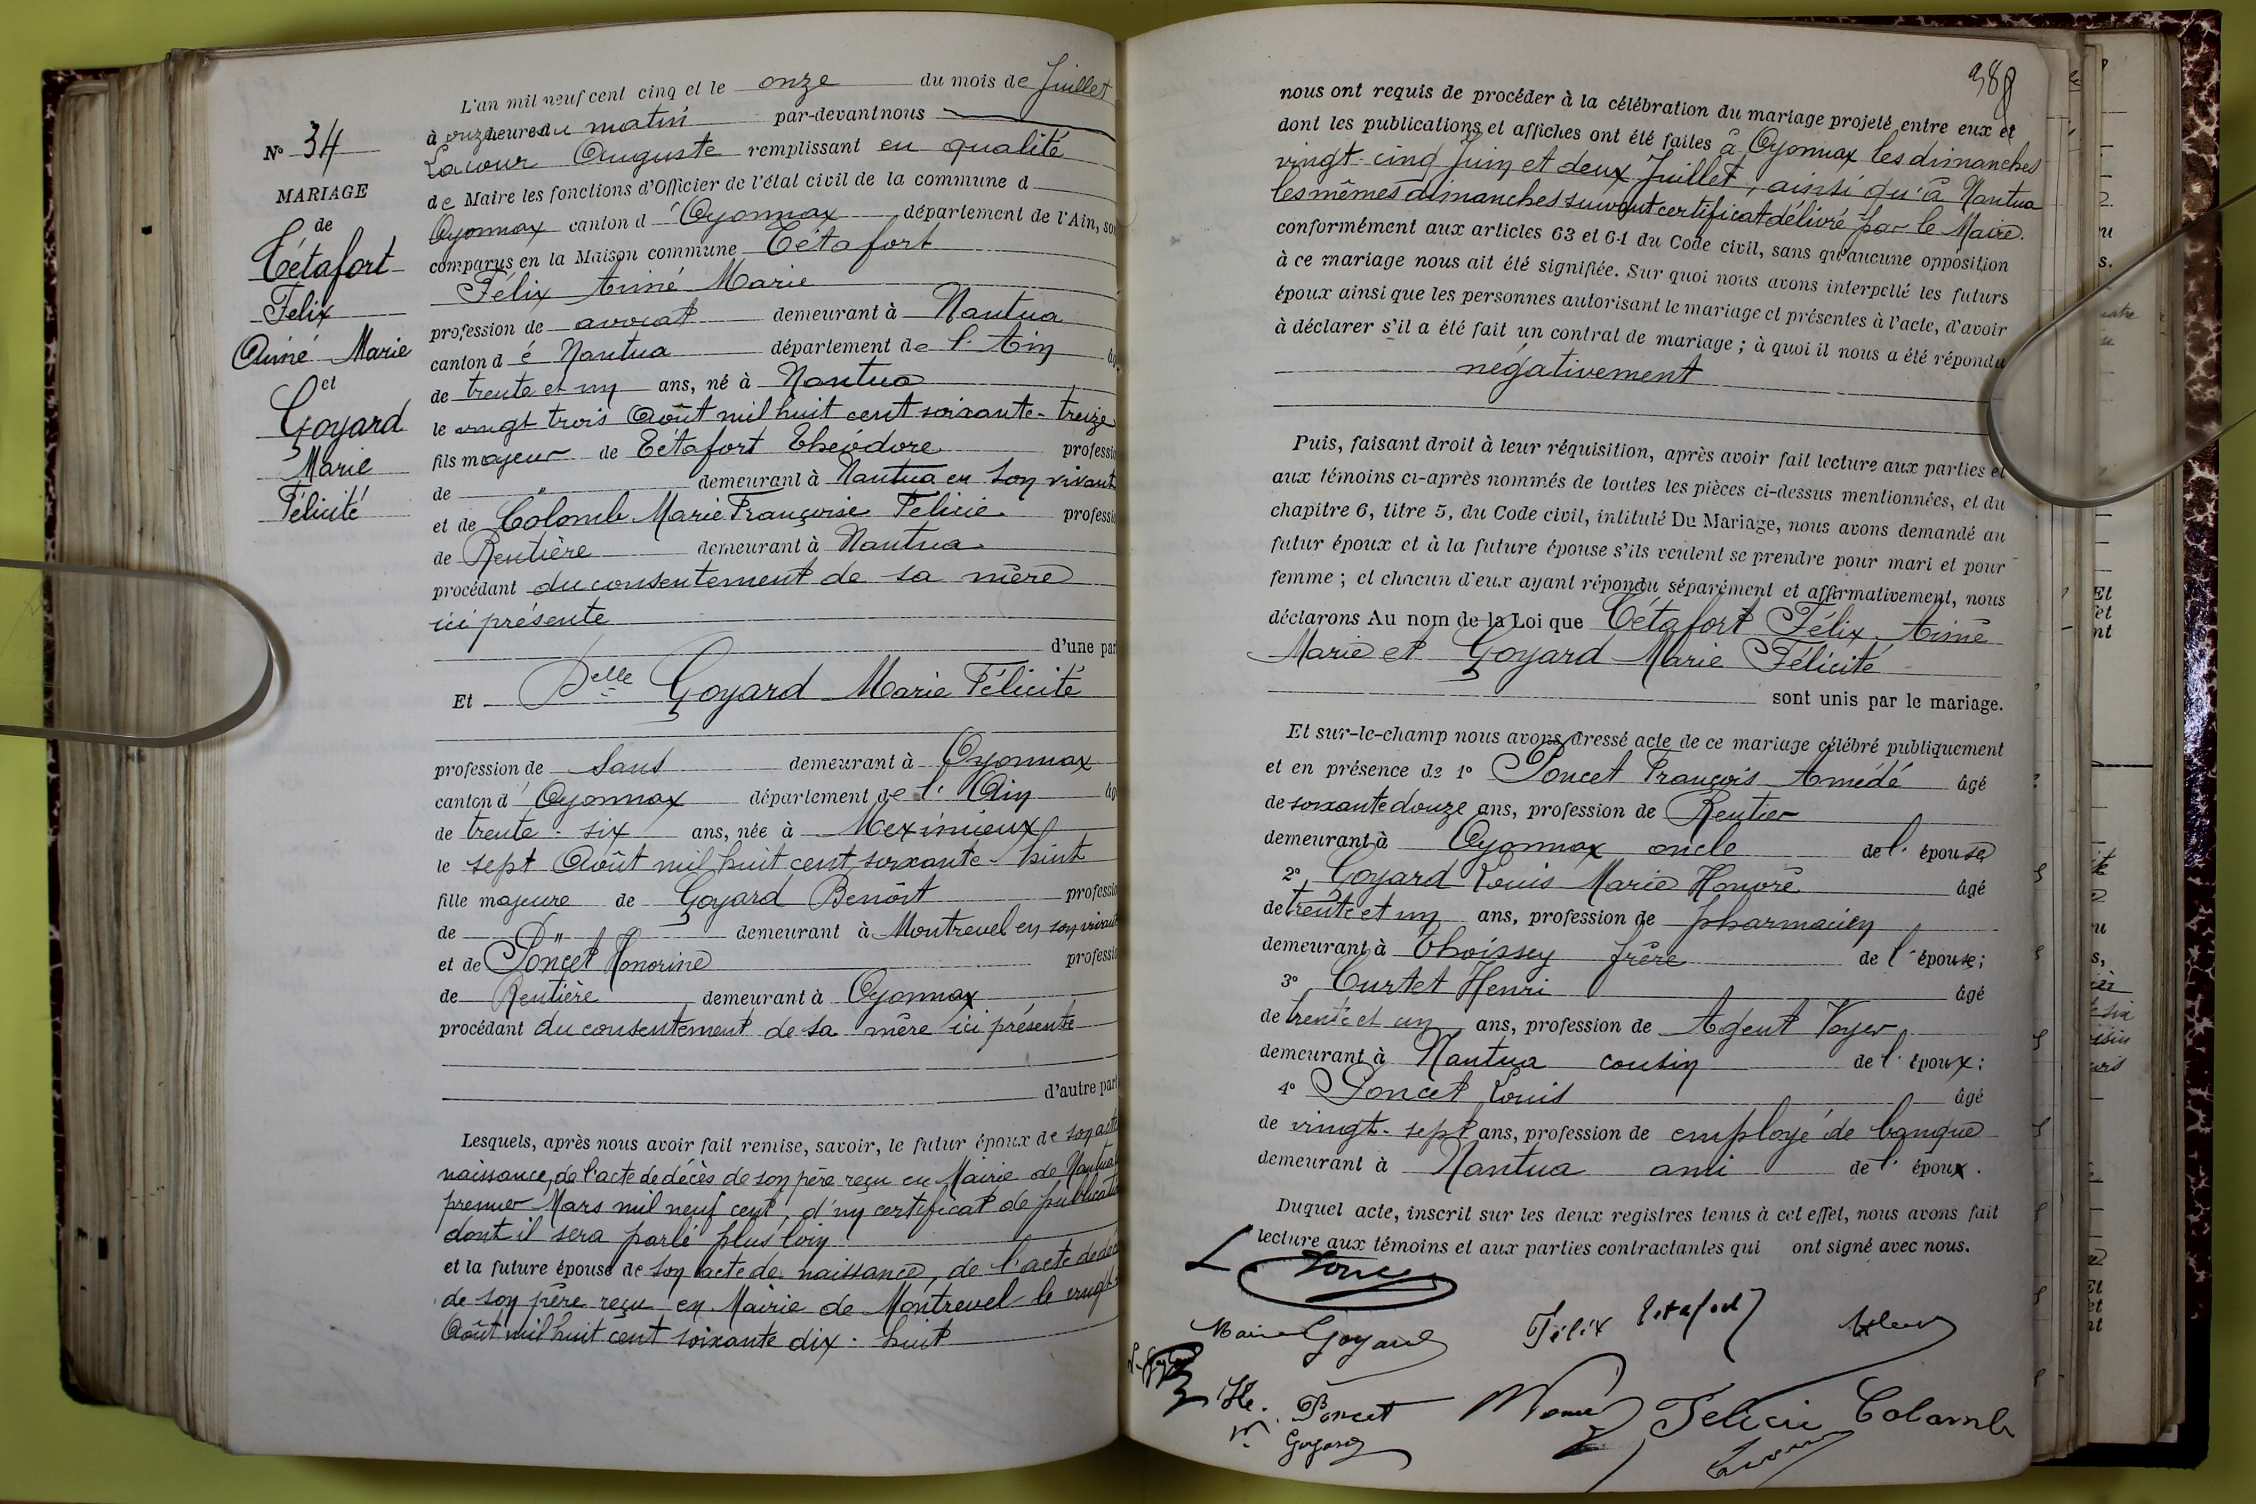 L'an mil neuf cent cinq et le onze du mois de Juillet
à onze heures du matin par-devant nous
Lacour Auguste remplissant en qualité
de Maire les fonctions d'Officier de l'état civil de la commune d
Oyonnax canton d'Oyonnax département de l'Ain, so
comparus en la Maison commune Tétafort
Félix Aimé Marie
profession de avocat demeurant à Nantua
canton d é Nantua département de l'Ain âg
de trente et un ans, né à Nantua
le vingt trois Août mil huit cent soixante-treize
fils majeur de Tétafort Théodore professio
de " demeurant à Nantua en son vivant
et de Colomb Marie Françoise Félicie professio
de Rentière demeurant à Nantua
procédant du consentement de sa mère
ici présente
d'une par
Et Delle Goyard Marie Félicité
profession de sans demeurant à Oyonnax
canton d'Oyonnax département de l'Ain âg
de trente-six ans, née à Meximieux
le sept Août mil huit cent soixante-huit
fille majeure de Goyard Benoît professio
de " demeurant à Montrevel en son vivant
et de Poncet Honorine professio
de Rentière demeurant à Oyonnax
procédant du consentement de sa mère ici présente
d'autre part
Lesquels, après nous avoir fait remise, savoir, le futur époux de son acte
naissance, de l'acte de décès de son père reçu en Mairie de Nantua
premier Mars mil neuf cent, d'un certificat de publicatio
dont il sera parlé plus loin
et la future épouse de son acte de naissance, de l'acte de déc
de son père reçu en Mairie de Montrevel le vingt
Août mil huit cent soixante dix-huit
N° 34
MARIAGE
de
Tétafort
Félix
Aimé Marie
et
Goyard
Marie
Félicité
388
nous ont requis de procéder à la célébration du mariage projeté entre eux et
dont les publications et affiches ont été faites à Oyonnax les dimanches
vingt-cinq Juin et deux Juillet, ainsi qu'à Nantua
les mêmes dimanches suivant certificat délivré par le Maire.
conformément aux articles 63 et 64 du Code civil, sans qu'aucune opposition
à ce mariage nous ait été signifiée. Sur quoi nous avons interpellé les futurs
époux ainsi que les personnes autorisant le mariage et présentes à l'acte, d'avoir
à déclarer s'il a été fait un contrat de mariage ; à quoi il nous a été répondu
négativement
Puis, faisant droit à leur réquisition, après avoir fait lecture aux parties et
aux témoins ci-après nommés de toutes les pièces ci-dessus mentionnées, et du
chapitre 6, titre 5, du Code civil, intitulé Du Mariage, nous avons demandé au
futur époux et à la future épouse s'ils veulent se prendre pour mari et pour
femme ; et chacun d'eux ayant répondu séparément et affirmativement, nous
déclarons Au nom de la Loi que Tétafort Félix Aimé
Marie et Goyard Marie Félicité
sont unis par le mariage.
Et sur-le-champ nous avons dressé acte de ce mariage célébré publiquement
et en présence de 1° Poncet François Amédé âgé
de soixante douze ans, profession de Rentier
demeurant à Oyonnax oncle de l'épouse
2° Goyard Louis Marie Honoré âgé
de trente et un ans, profession de pharmacien
demeurant à Thoissey frère de l'épouse ;
3° Curtet Henri âgé
de trente et un ans, profession de Agent Voyer
demeurant à Nantua cousin de l'époux ;
4° Poncet Louis âgé
de vingt-sept ans, profession de employé de banque
demeurant à Nantua ami de l'époux.
Duquel acte, inscrit sur les deux registres tenus à cet effet, nous avons fait
lecture aux témoins et aux parties contractantes qui ont signé avec nous.
Marie Goyard Félix Tétafort
Poncet Félicie Colomb
Goyard